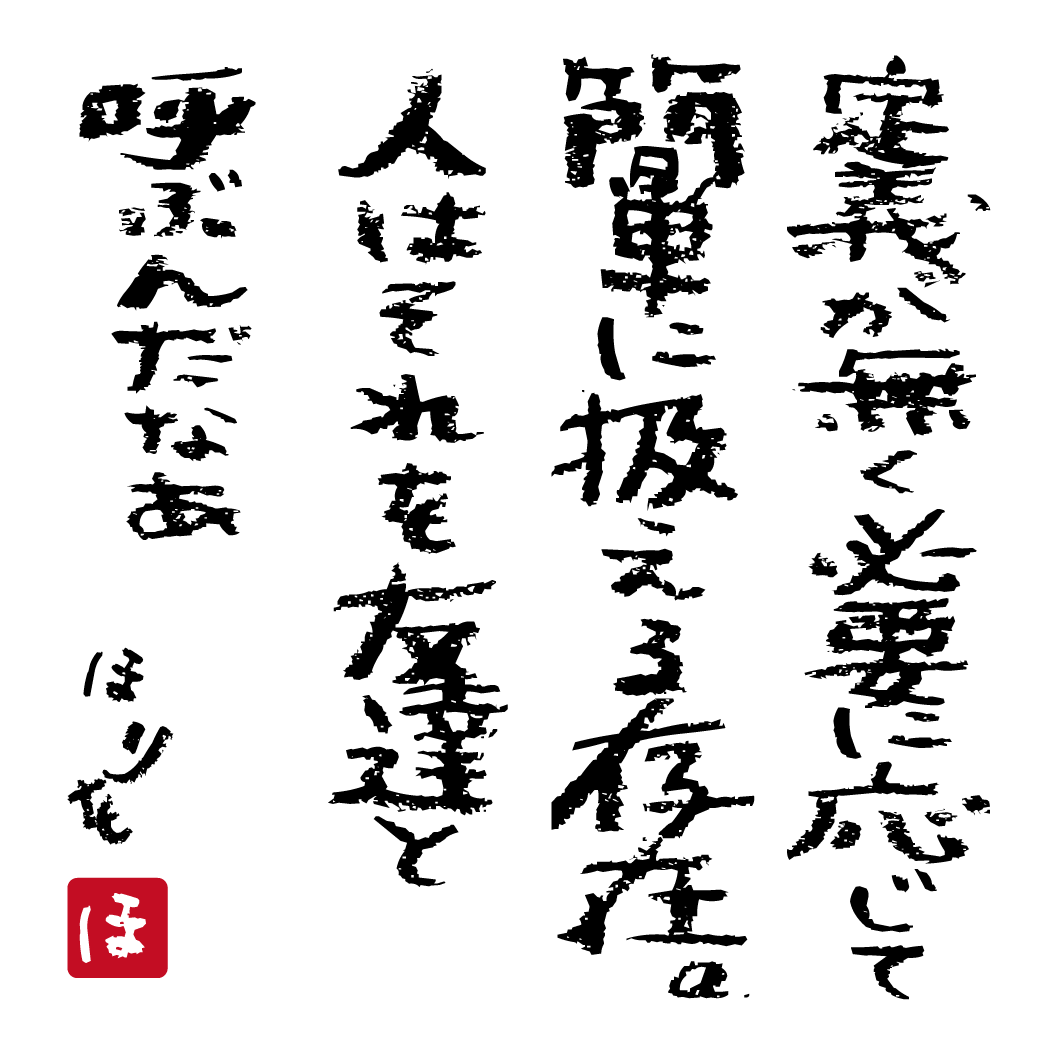 定義が無く必要に応じて
簡単に扱える存在。
人はそれを友達と
呼ぶんだなあ
ほりを
ほ